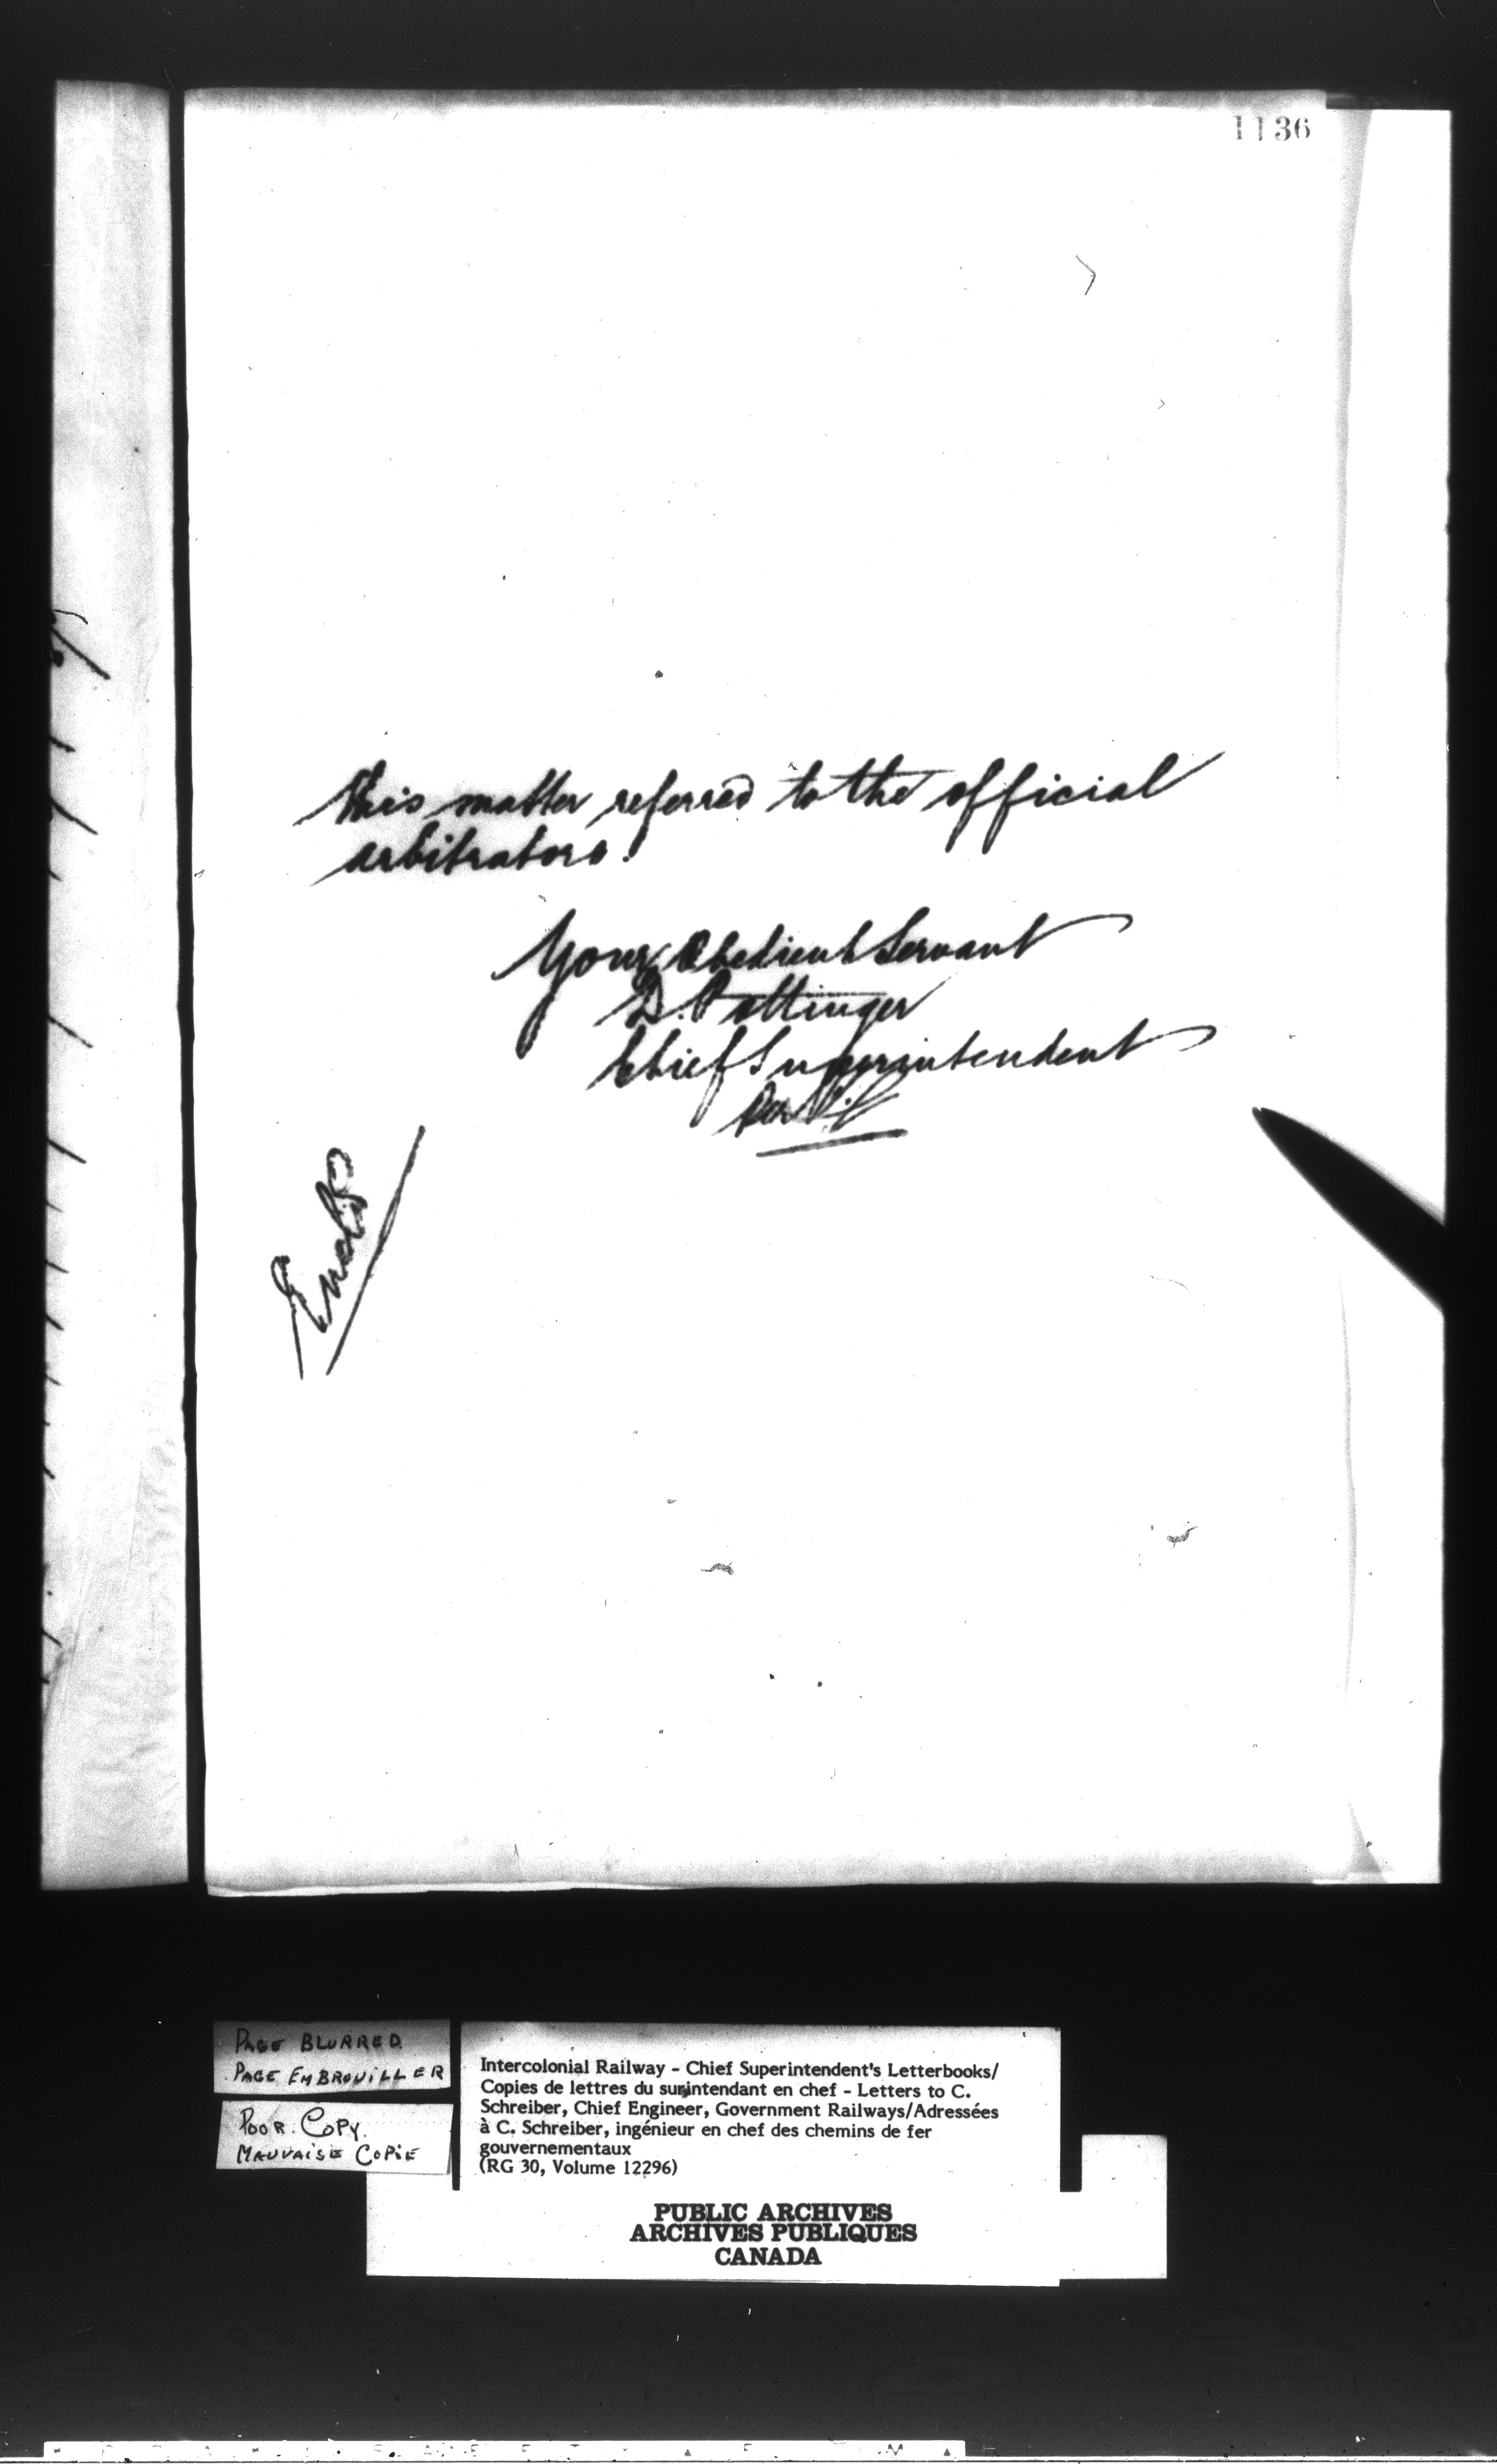 1136
this matter referred to the official
arbitrators.
Your Obedient Servant
D. Pottinger
Chief Superintendent
Per
Encls
PAGE BLURRED
PAGE EMBROUILLER
POOR COPY.
MAUVAISE COPIE
Intercolonial Railway - Chief Superintendent's Letterbooks/
Copies de lettres du surintendant en chef - Letters to C.
Schreiber, Chief Engineer, Government Railways/Adressées
à C. Schreiber, ingénieur en chef des chemins de fer
gouvernementaux
(RG 30, Volume 12296)
PUBLIC ARCHIVES
ARCHIVES PUBLIQUES
CANADA